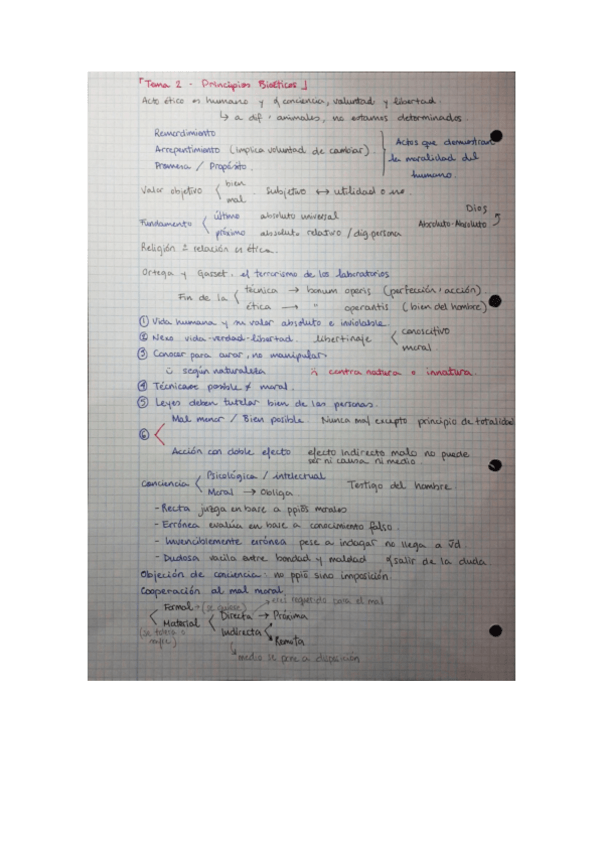 「Tema 2 - Principios Bioéticos」
Acto ético es humano y d/ conciencia, voluntad y libertad.
↳ a dif. animales, no estamos determinados.
Remordimiento
Arrepentimiento (implica voluntad de cambiar).
Promesa / Propósito.
Actos que demuestran la moralidad del humano.
Valor objetivo < bien mal. Subjetivo ↔ utilidad o no.
Fundamento < último absoluto universal
próximo absoluto relativo / dig persona
Dios
Absoluto-Absoluto
Religión = relación es ética.
Ortega y Gasset. el terrorismo de los laboratorios
Fin de la < técnica → bonum operis (perfección, acción).
ética → " operantis (bien del hombre)
① Vida humana y su valor absoluto e inviolable.
② Nexo vida-verdad-libertad. libertinaje < conoscitivo moral
③ Conocer para curar, no manipular
según naturaleza contra natura o innatura.
④ Técnicame posible ≠ moral.
⑤ Leyes deben tutelar bien de las personas.
⑥ < Mal menor / Bien posible Nunca mal excepto principio de totalidad
Acción con doble efecto efecto indirecto malo no puede ser ni causa ni medio
Conciencia < Psicológica / intelectual
Moral → Obliga
Testigo del hombre.
- Recta juzga en base a ppios morales
- Errónea evalúa en base a conocimiento falso.
- Invenciblemente errónea pese a indagar no llega a Vd.
- Dudosa vacila entre bondad y maldad salir de la duda
Objeción de conciencia: no ppio sino imposición.
Cooperación al mal moral.
< Formal → (se quiere)
Material
(se tolera o sufre)
< Directa → Próxima
Indirecta → Remota
eres requerido para el mal
↳ medio se pone a disposición